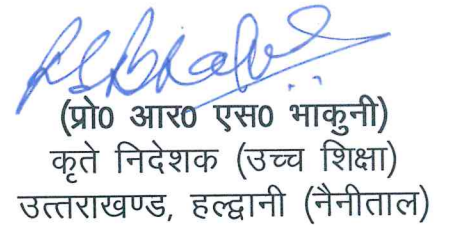 (प्रो0 आर0 एस0 भाकुनी)
कृते निदेशक (उच्च शिक्षा)
उत्तराखण्ड, हल्द्वानी (नैनीताल)